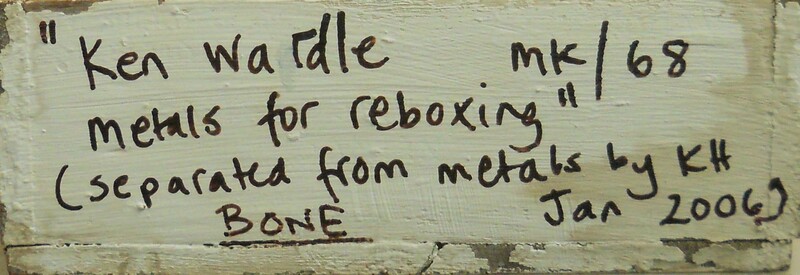 "Ken Wardle MK/68
metals for reboxing"
(separated from metals by KH
Jan 2006)
BONE